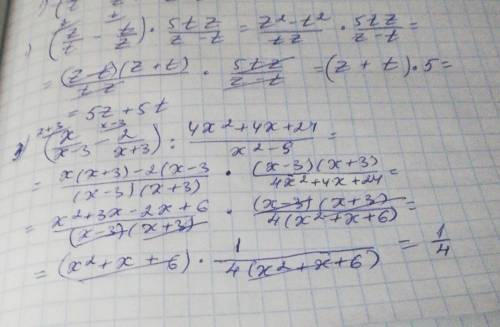 (z/t - t/z) · 5tz/(z-t) = (z²-t²)/(tz) · 5tz/(z-t) =
= (z-t)(z+t)/(tz) · 5tz/(z-t) = (z+t)·5 =
= 5z+5t
(x/(x-3) - 2/(x+3)) : (4x²+4x+24)/(x²-9) =
= (x(x+3)-2(x-3)/((x-3)(x+3)) · (x-3)(x+3)/(4x²+4x+24) =
= (x²+3x-2x+6)/((x-3)(x+3)) · (x-3)(x+3)/(4(x²+x+6)) =
= (x²+x+6) · 1/(4(x²+x+6)) = 1/4